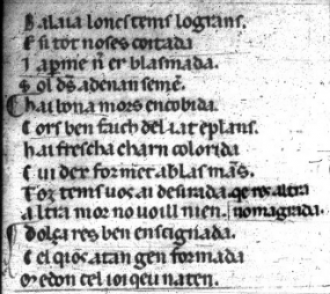 Balaia lonc tems lo grans.
E si tot no ses coitada
Ia per me n er blasmada.
Sol ds adenan seme.
Chai bona mors encobida.
Cors ben faich delgat e plans.
hai frescha charn colorida
Cui dex formet ab las mas.
Toz tems uos ai desirada qe res altra
Altra mor no uoill nien. no magrada.
Dolça res ben enseignada.
Cel qios atan gen formada
Men don cel ioi qeu naten.